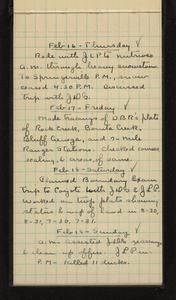 Feb-16-Thursday
Rode with J.L.P. to Nutrioso
a.m. through heavy snowstorm
To Springerville P.M., snow
ceased 4:30 P.M. Discussed
trip with J.D.G.
Feb-17-Friday
Made Tracings of D.B.R's plats
of Rock Creek, Bonita Creek,
Bluff Range, and 3-Mile
Ranger Stations. Checked courses,
scaling, & areas, of same.
Feb-18-Saturday
Planned Boundary Exam
Trip to Coyote with J.D.G & J.L.P.
Worked on twp. plats showing
status & map of land in 8-30,
8-31, 7-30, 7-31.
Feb-19-Sunday
a.m. assisted J.D.G.
& clean up office. J.L.P. in
P.M- Killed 11 ducks.